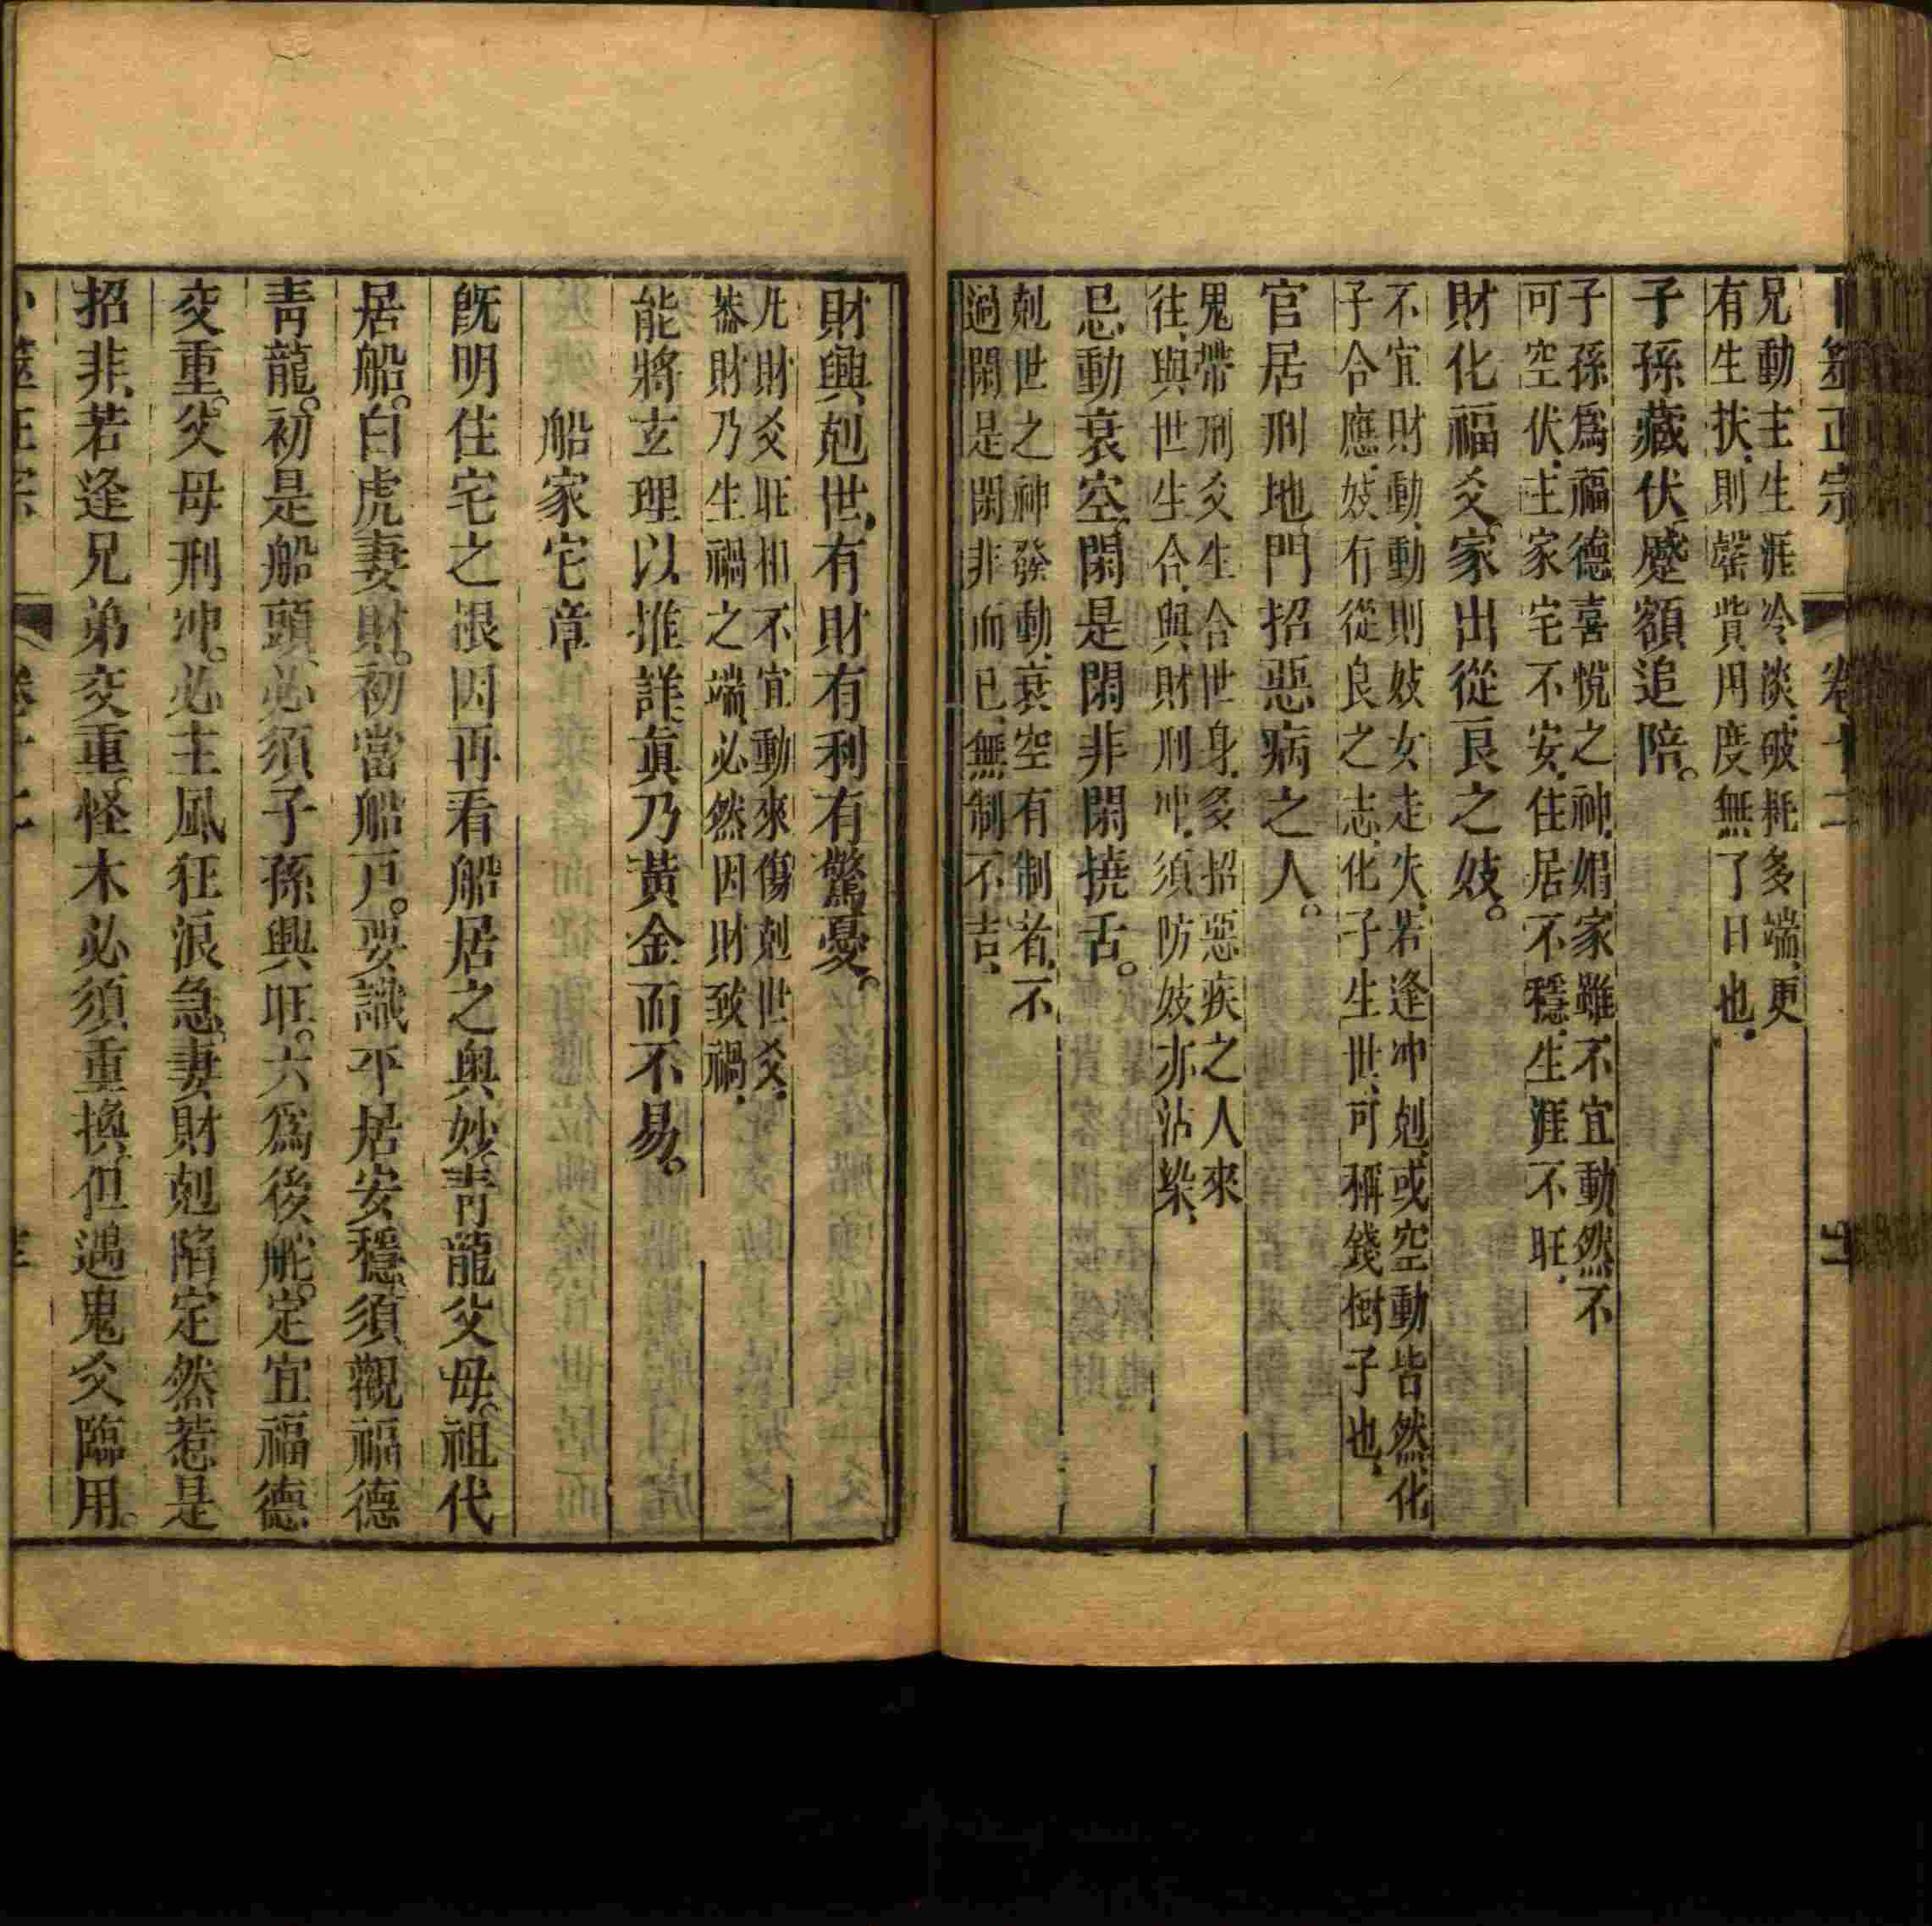 卜筮正宗 卷十二
兄動主生涯冷淡破耗多端更
有生扶則罄貲用度無了日也
子孫藏伏蹙額追陪
子孫爲福德喜悅之神娼家雖不宜動然不
可空伏主家宅不安住居不穩生涯不旺
財化福爻家出從良之妓
不宜財動動則妓女走失若逢冲剋或空動皆然化
子合應妓有從良之志化子生世可稱錢樹子也
官居刑地門招惡病之人
鬼帶刑爻生合世身多招惡疾之人來
往與世生合與財刑冲須防妓亦沾染
忌動衰空閑是閑非閑撓舌
剋世之神發動衰空有制者不
過閑是閑非而已無制不吉
財興剋世有財有利有驚憂
凡財爻旺相不宜動來傷剋世爻
葢財乃生禍之端必然因財致禍
能將玄理以推詳眞乃黃金而不易
船家宅章
旣明住宅之根因再看船居之奥妙青龍父母祖代
居船白虎妻財初當船戸要識平居安穩須觀福德
青龍初是船頭必須子孫興旺六爲後舵定宜福德
交重父母刑冲必主風狂浪急妻財剋陷定然惹是
招非若逢兄弟交重怪木必須重換但遇鬼爻臨用